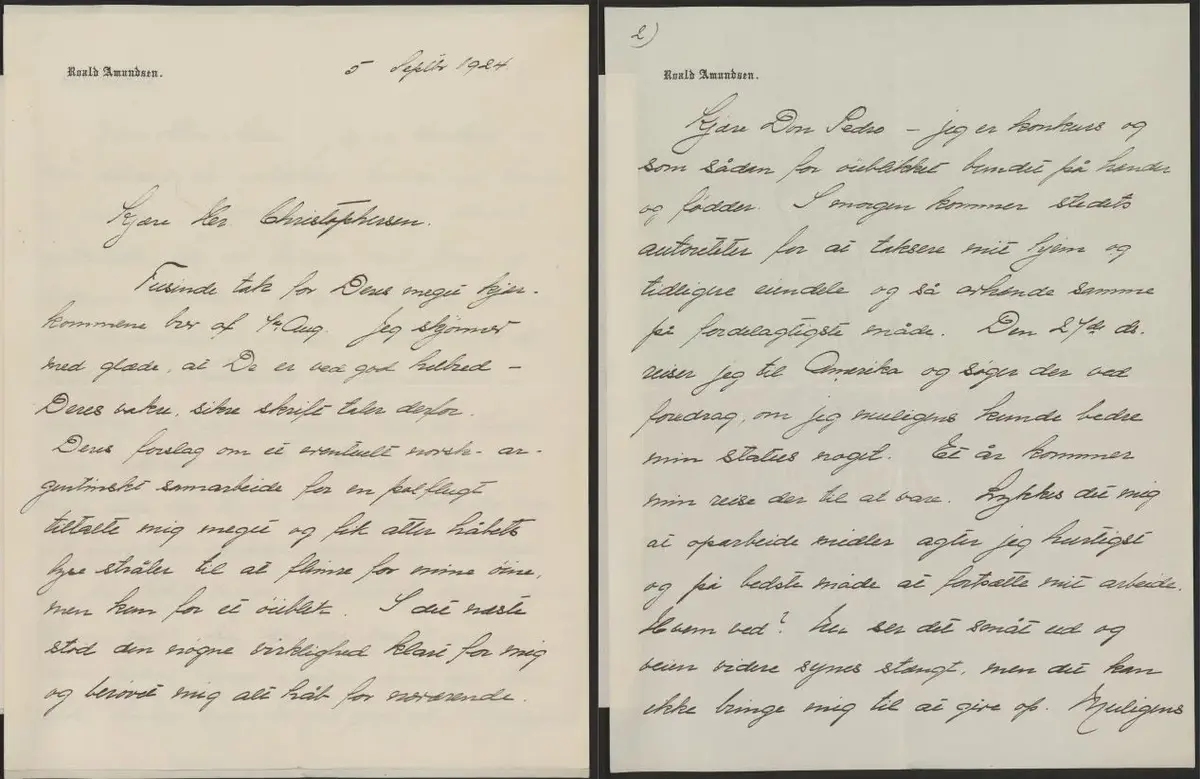 Roald Amundsen.
5 Septbr 1924
Kjære Her Christophersen.
Tusinde tak for Deres meget kjær-
kommene brev af 4de Aug. Jeg skjønner
med glæde, at De er ved god helbred –
Deres vakre, sikre skrift taler derfor.
Deres forslag om et eventuelt norsk-ar-
gentinskt samarbeide for en polflugt
tiltalte mig meget og fik atter håbets
lyse stråler til at flimre for mine öine,
men kun for et öieblik. I det næste
stod den nøgne virklighed klart for mig
og berövet mig alt håb for nærværende.
2)
Roald Amundsen.
Kjære Don Pedro – jeg er konkurs og
som sådan for öieblikket bundet på hænder
og fødder. I morgen kommer stedets
autoriteter for at taksere mit hjem og
tidligere eiendele og så avhænde samme
på fordelagtigste måde. Den 27de ds.
reiser jeg til Amerika og søger der ved
foredrag, om jeg muligens kunde bedre
min status noget. Et år kommer
min reise der til at vare. Lykkes det mig
at oparbeide midler agter jeg hurtigst
og på bedste måde at fortsætte mit arbeide.
Hvem ved? Nu ser det småt ud og
veien videre synes stængt, men det kan
ikke bringe mig til at give op. Muligens